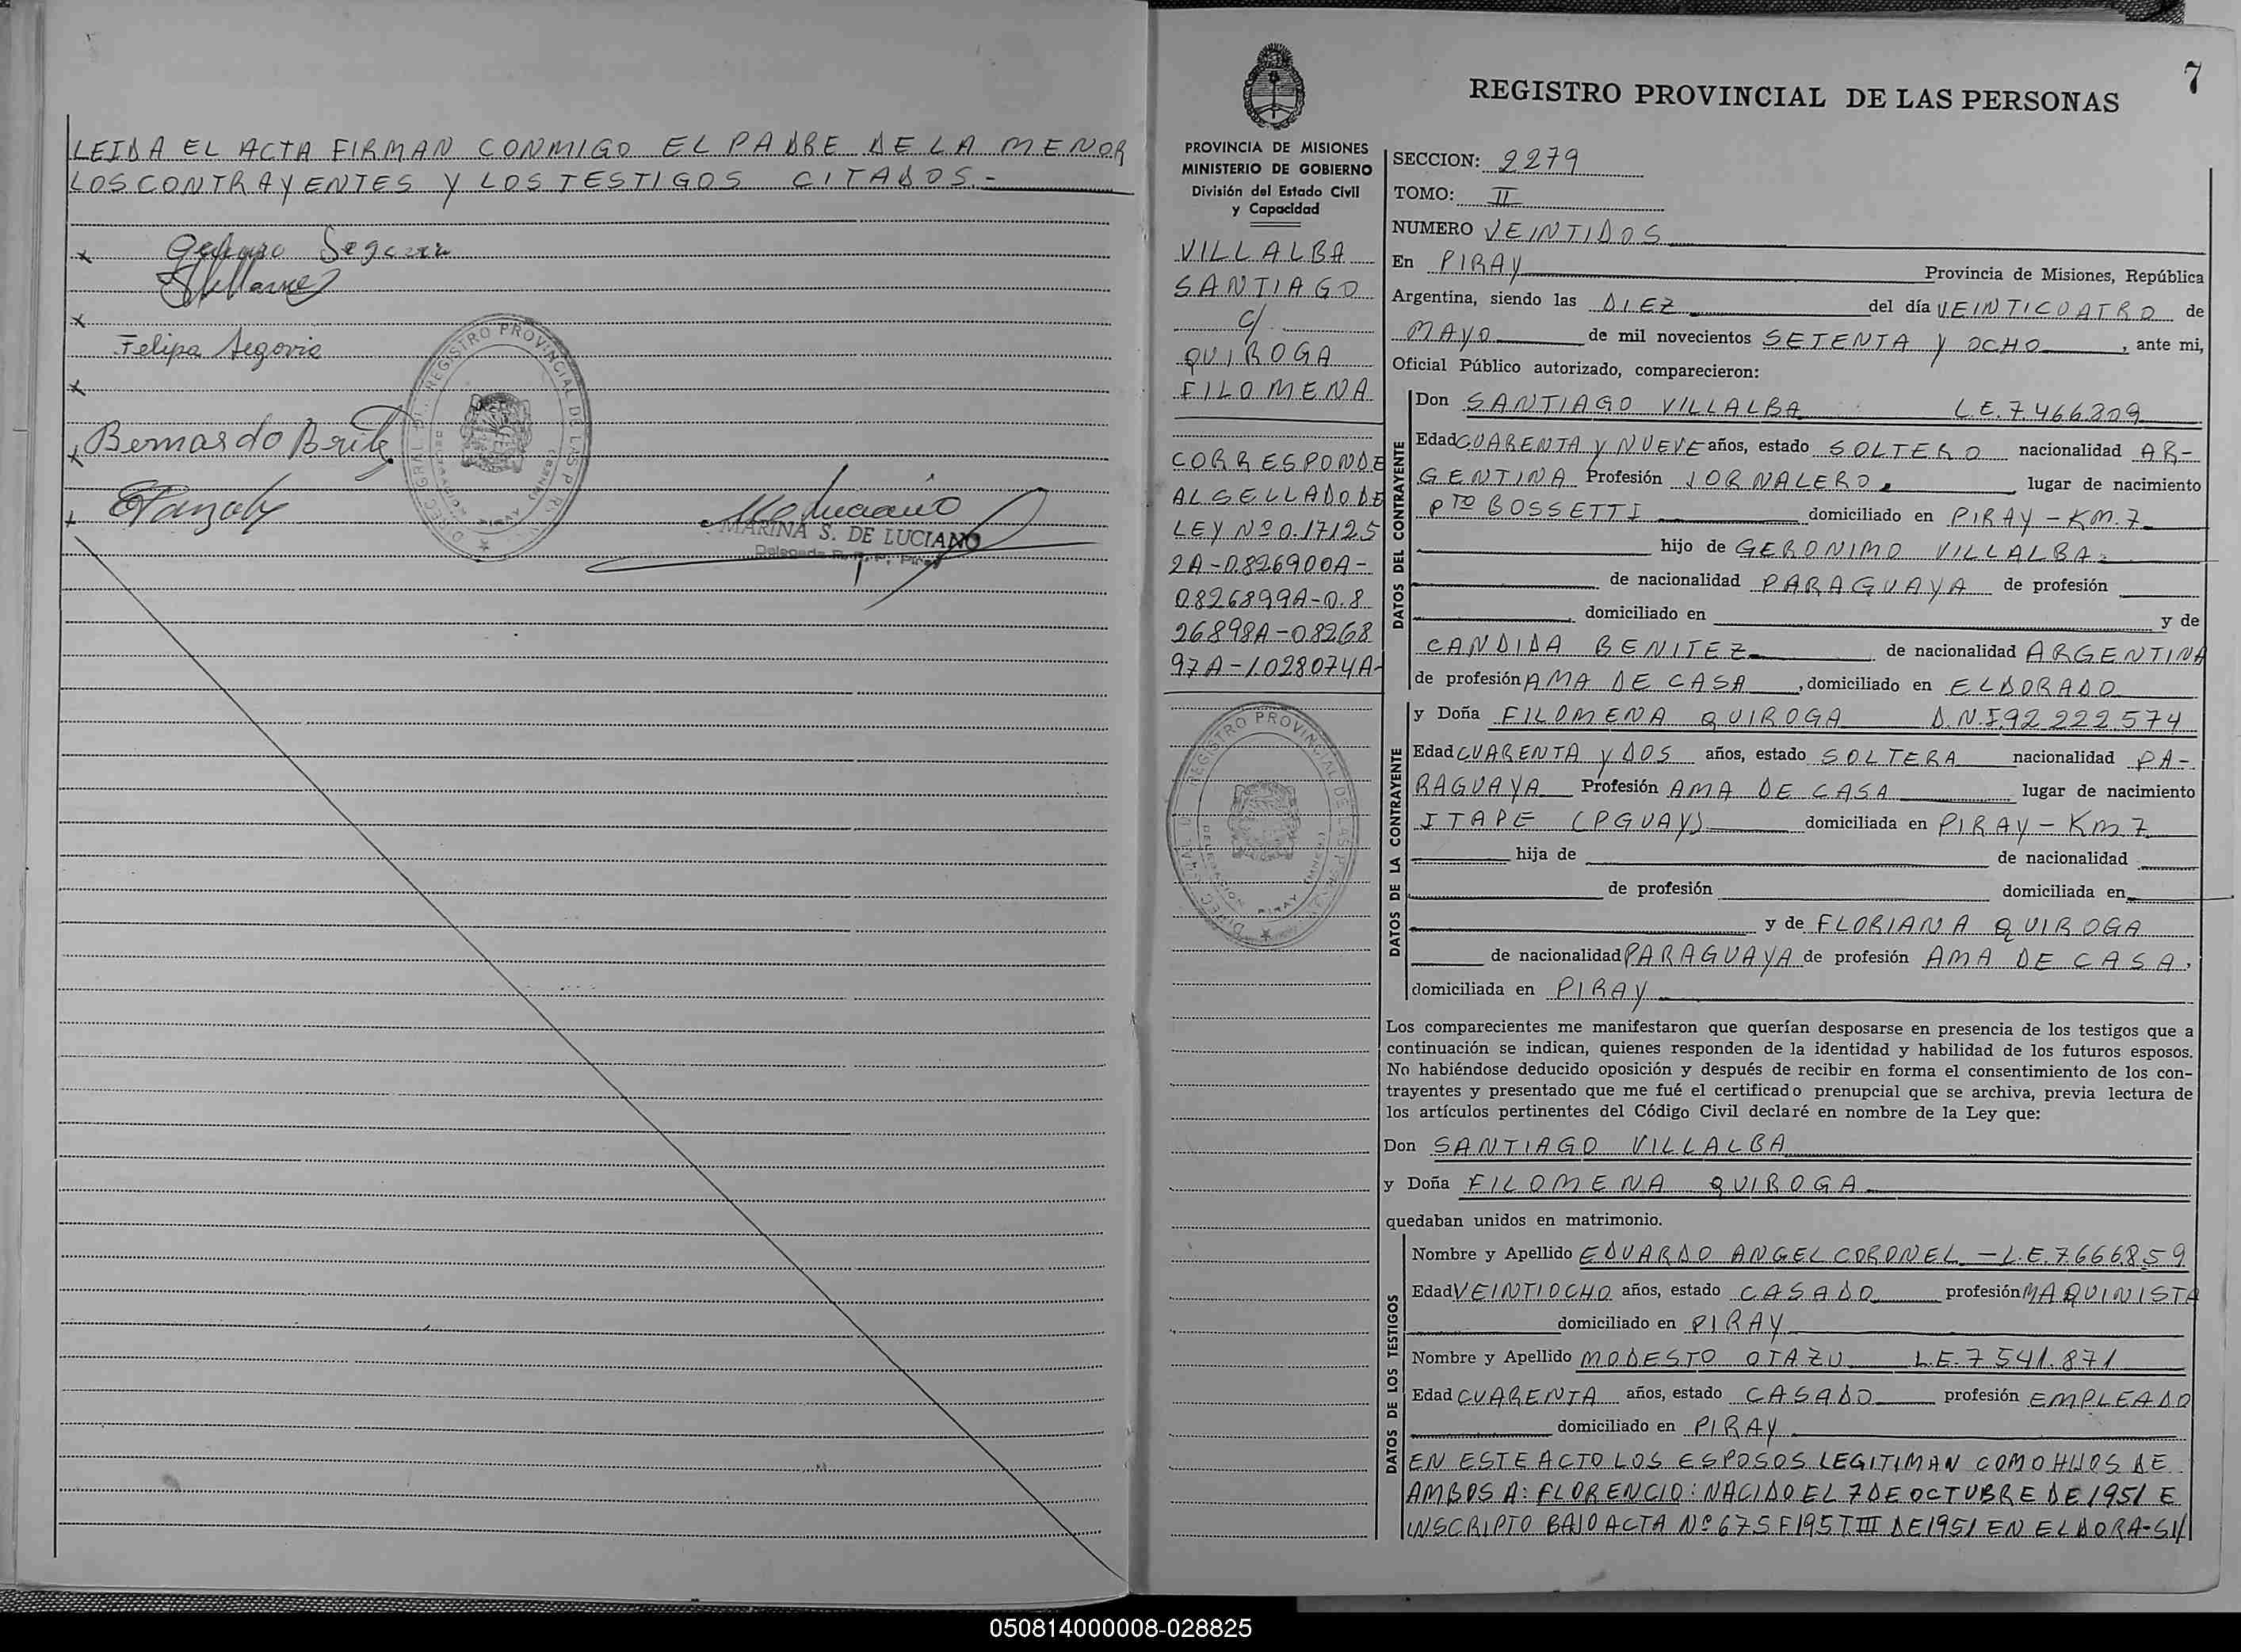 LEIDA EL ACTA FIRMAN CONMIGO EL PADRE DE LA MENOR
LOS CONTRAYENTES Y LOS TESTIGOS CITADOS.-
Segovia
Felipa Segovia
Bernardo Brite
MARINA S. DE LUCIANO
Delegada R. P. P. Piray
REGISTRO PROVINCIAL DE LAS
PIRAY
7
REGISTRO PROVINCIAL DE LAS PERSONAS
PROVINCIA DE MISIONES
MINISTERIO DE GOBIERNO
División del Estado Civil
y Capacidad
VILLALBA
SANTIAGO
c/
QUIROGA
FILOMENA
CORRESPONDE
AL SELLADO DE
LEY Nº 0.17125
2A-0.826900A-
0826899A-0.8
26898A-08268
97A-1.028074A-
REGISTRO PROVINCIAL DE LAS
DELEGACION PIRAY
SECCION: 2279
TOMO: II
NUMERO VEINTIDOS
En PIRAY Provincia de Misiones, República
Argentina, siendo las DIEZ del día VEINTICUATRO de
MAYO de mil novecientos SETENTA Y OCHO, ante mi,
Oficial Público autorizado, comparecieron:
DATOS DEL CONTRAYENTE
Don SANTIAGO VILLALBA L.E. 7.466.809
Edad CUARENTA Y NUEVE años, estado SOLTERO nacionalidad AR-
GENTINA Profesión JORNALERO. lugar de nacimiento
PTO BOSSETTI domiciliado en PIRAY - KM. 7
hijo de GERONIMO VILLALBA
de nacionalidad PARAGUAYA de profesión
domiciliado en y de
CANDIDA BENITEZ de nacionalidad ARGENTINA
de profesión AMA DE CASA, domiciliado en ELDORADO
DATOS DE LA CONTRAYENTE
y Doña FILOMENA QUIROGA D.N.I. 92.222.574
Edad CUARENTA Y DOS años, estado SOLTERA nacionalidad PA-
RAGUAYA Profesión AMA DE CASA lugar de nacimiento
ITAPE (PGUAY) domiciliada en PIRAY - KM 7
hija de de nacionalidad
de profesión domiciliada en
y de FLORIANA QUIROGA
de nacionalidad PARAGUAYA de profesión AMA DE CASA,
domiciliada en PIRAY
Los comparecientes me manifestaron que querían desposarse en presencia de los testigos que a
continuación se indican, quienes responden de la identidad y habilidad de los futuros esposos.
No habiéndose deducido oposición y después de recibir en forma el consentimiento de los con-
trayentes y presentado que me fué el certificado prenupcial que se archiva, previa lectura de
los artículos pertinentes del Código Civil declaré en nombre de la Ley que:
Don SANTIAGO VILLALBA
y Doña FILOMENA QUIROGA
quedaban unidos en matrimonio.
DATOS DE LOS TESTIGOS
Nombre y Apellido EDUARDO ANGEL CORONEL - L.E. 7.666.859
Edad VEINTIOCHO años, estado CASADO profesión MAQUINISTA
domiciliado en PIRAY
Nombre y Apellido MODESTO OTAZU L.E. 7541.871
Edad CUARENTA años, estado CASADO profesión EMPLEADO
domiciliado en PIRAY
EN ESTE ACTO LOS ESPOSOS LEGITIMAN COMO HIJOS DE
AMBOS A: FLORENCIO: NACIDO EL 7 DE OCTUBRE DE 1951 E
INSCRIPTO BAJO ACTA Nº 675 F195 T.III DE 1951 EN ELDORA-
050814000008-028825